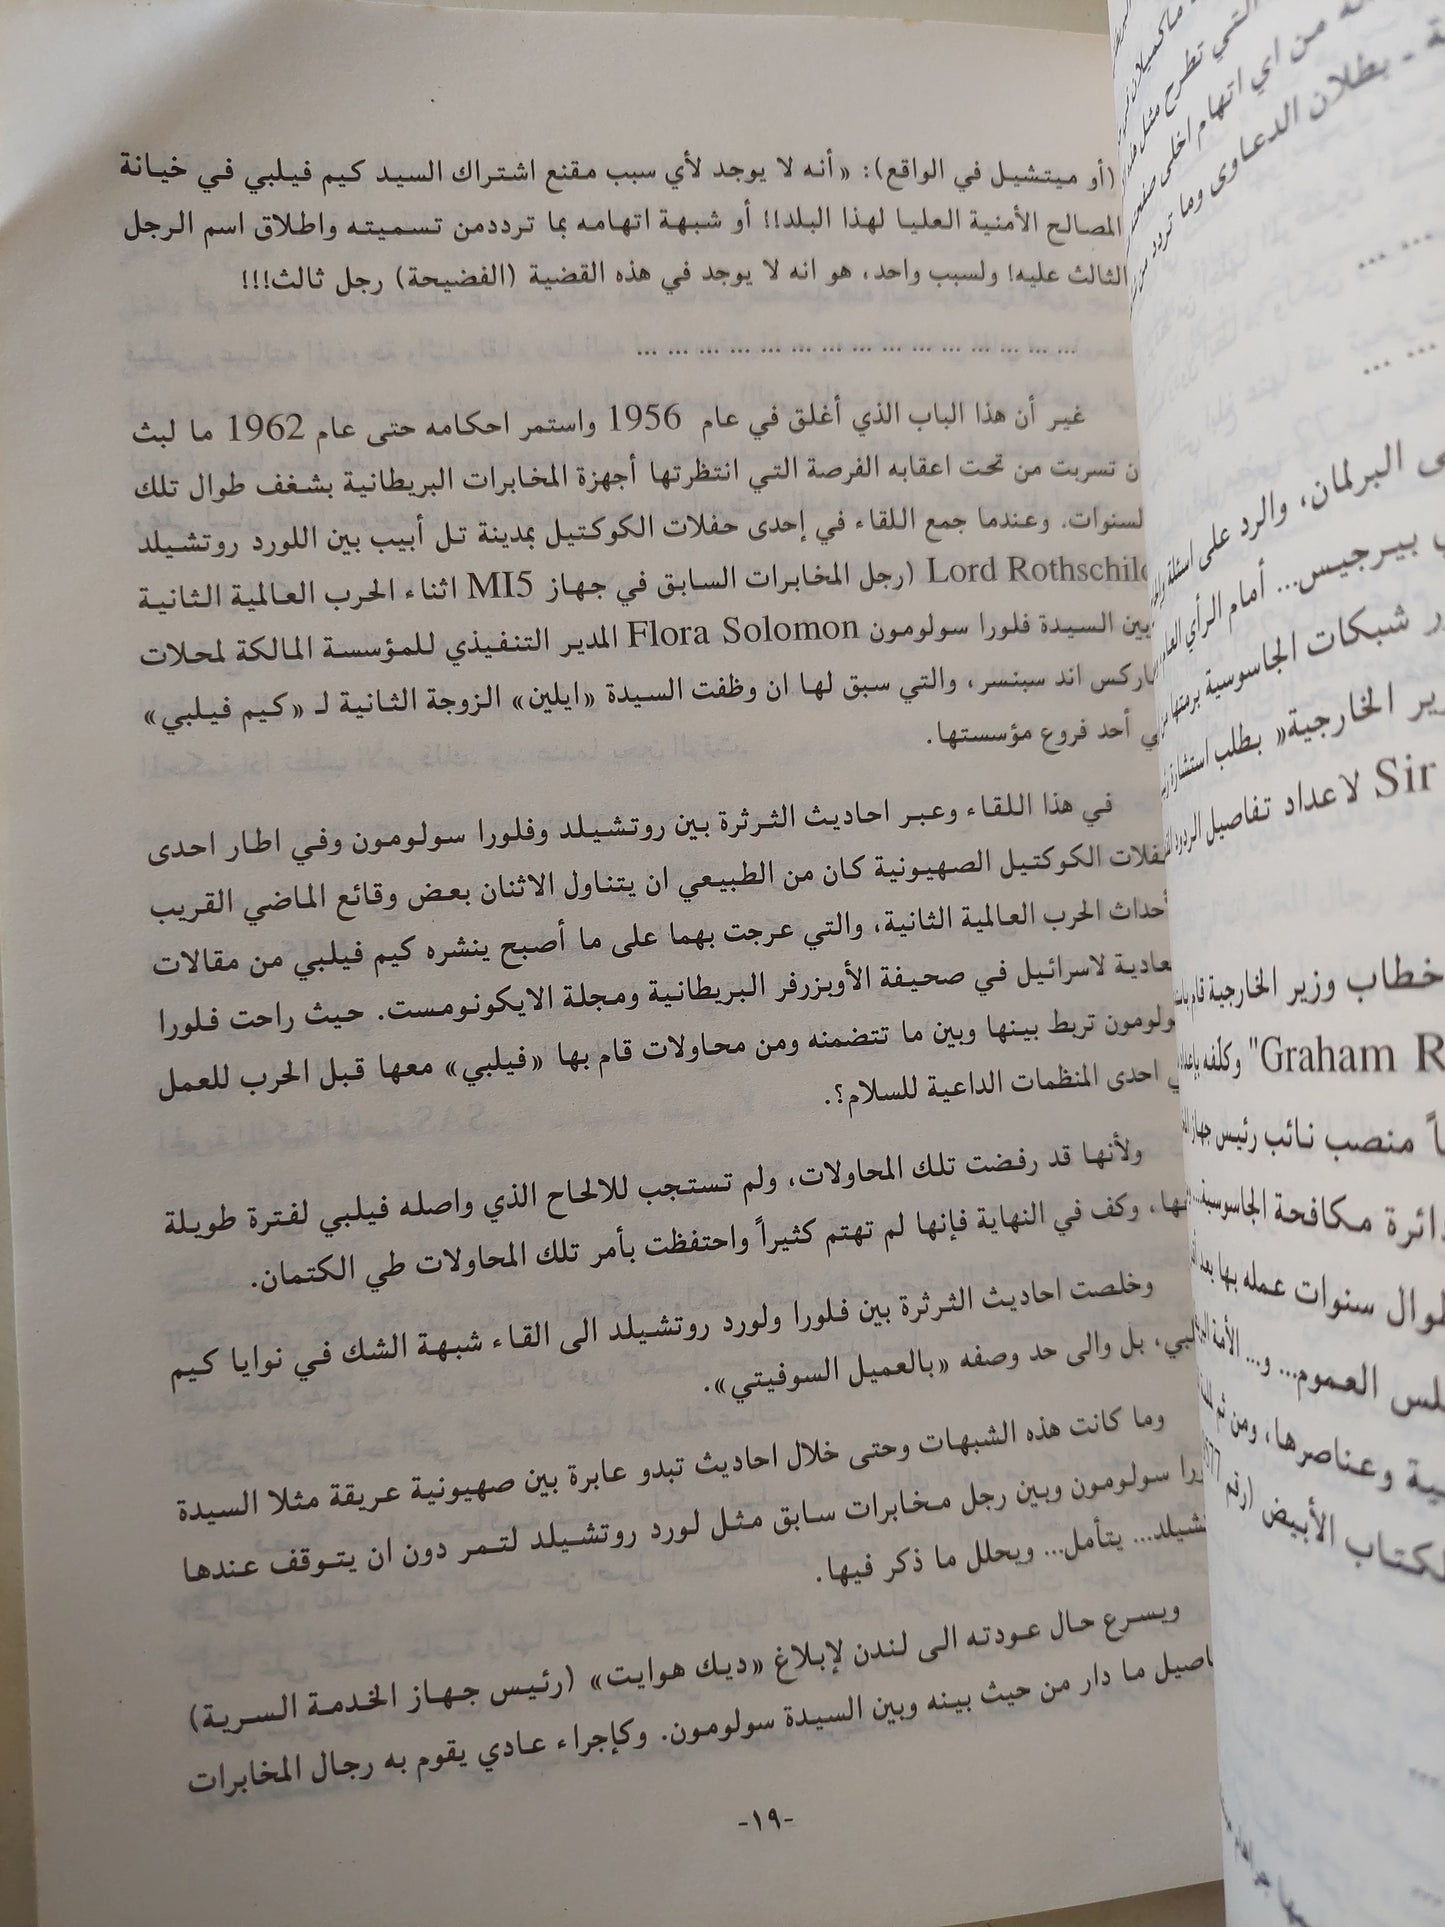 (أو ميتشيل في الواقع): «أنه لا يوجد لأي سبب مقنع اشتراك السيد كيم فيلبي في خيانة
المصالح الأمنية العليا لهذا البلد!! أو شبهة اتهامه بما ترددمن تسميته واطلاق اسم الرجل
الثالث عليه! ولسبب واحد، هو انه لا يوجد في هذه القضية (الفضيحة) رجل ثالث!!!
... ... ... ... ... ... ... ... ... ... ... ... ... ... ...
غير أن هذا الباب الذي أغلق في عام 1956 واستمر احكامه حتى عام 1962 ما لبث
ن تسربت من تحت اعقابه الفرصة التي انتظرتها أجهزة المخابرات البريطانية بشغف طوال تلك
لسنوات. وعندما جمع اللقاء في إحدى حفلات الكوكتيل بمدينة تل أبيب بين اللورد روتشيلد
Lord Rothschild (رجل المخابرات السابق في جهاز MI5 اثناء الحرب العالمية الثانية
بين السيدة فلورا سولومون Flora Solomon المدير التنفيذي للمؤسسة المالكة لمحلات
ماركس اند سبنسر، والتي سبق لها ان وظفت السيدة «ايلين» الزوجة الثانية لـ «كيم فيلبي»
ي أحد فروع مؤسستها.
في هذا اللقاء وعبر احاديث الثرثرة بين روتشيلد وفلورا سولومون وفي اطار احدى
فلات الكوكتيل الصهيونية كان من الطبيعي ان يتناول الاثنان بعض وقائع الماضي القريب
أحداث الحرب العالمية الثانية، والتي عرجت بهما على ما أصبح ينشره كيم فيلبي من مقالات
عادية لاسرائيل في صحيفة الأوبزرفر البريطانية ومجلة الايكونومست. حيث راحت فلورا
ولومون تربط بينها وبين ما تتضمنه ومن محاولات قام بها «فيلبي» معها قبل الحرب للعمل
ي احدى المنظمات الداعية للسلام؟.
ولأنها قد رفضت تلك المحاولات، ولم تستجب للالحاح الذي واصله فيلبي لفترة طويلة
ها، وكف في النهاية فإنها لم تهتم كثيراً واحتفظت بأمر تلك المحاولات طي الكتمان.
وخلصت احاديث الثرثرة بين فلورا ولورد روتشيلد الى القاء شبهة الشك في نوايا كيم
لبي، بل والى حد وصفه «بالعميل السوفيتي».
وما كانت هذه الشبهات وحتى خلال احاديث تبدو عابرة بين صهيونية عريقة مثلا السيدة
ورا سولومون وبين رجل مخابرات سابق مثل لورد روتشيلد لتمر دون ان يتوقف عندها
تشيلد... يتأمل... ويحلل ما ذكر فيها.
ويسرع حال عودته الى لندن لإبلاغ «ديك هوايت» (رئيس جهاز الخدمة السرية)
اصيل ما دار من حيث بينه وبين السيدة سولومون. وكإجراء عادي يقوم به رجال المخابرات
-١٩-
ماكميلان
التي تطرح مثل
من اي اتهام اخلى صفحته
- بطلان الدعاوى وما تردد
... ...
... ...
ى البرلمان، والرد على اسئلة
بيرجيس... أمام الرأي العام
ر شبكات الجاسوسية برمتها
ير الخارجية» بطلب استشارة
Sir لاعداد تفاصيل الردود
خطاب وزير الخارجية قام
Graham R" وكلفه
اً منصب نائب رئيس جهاز
دائرة مكافحة الجاسوسية...
طوال سنوات عمله بها بعد
لس العموم... و... الأمة
ية وعناصرها، ومن ثم
لكتاب الأبيض (رقم